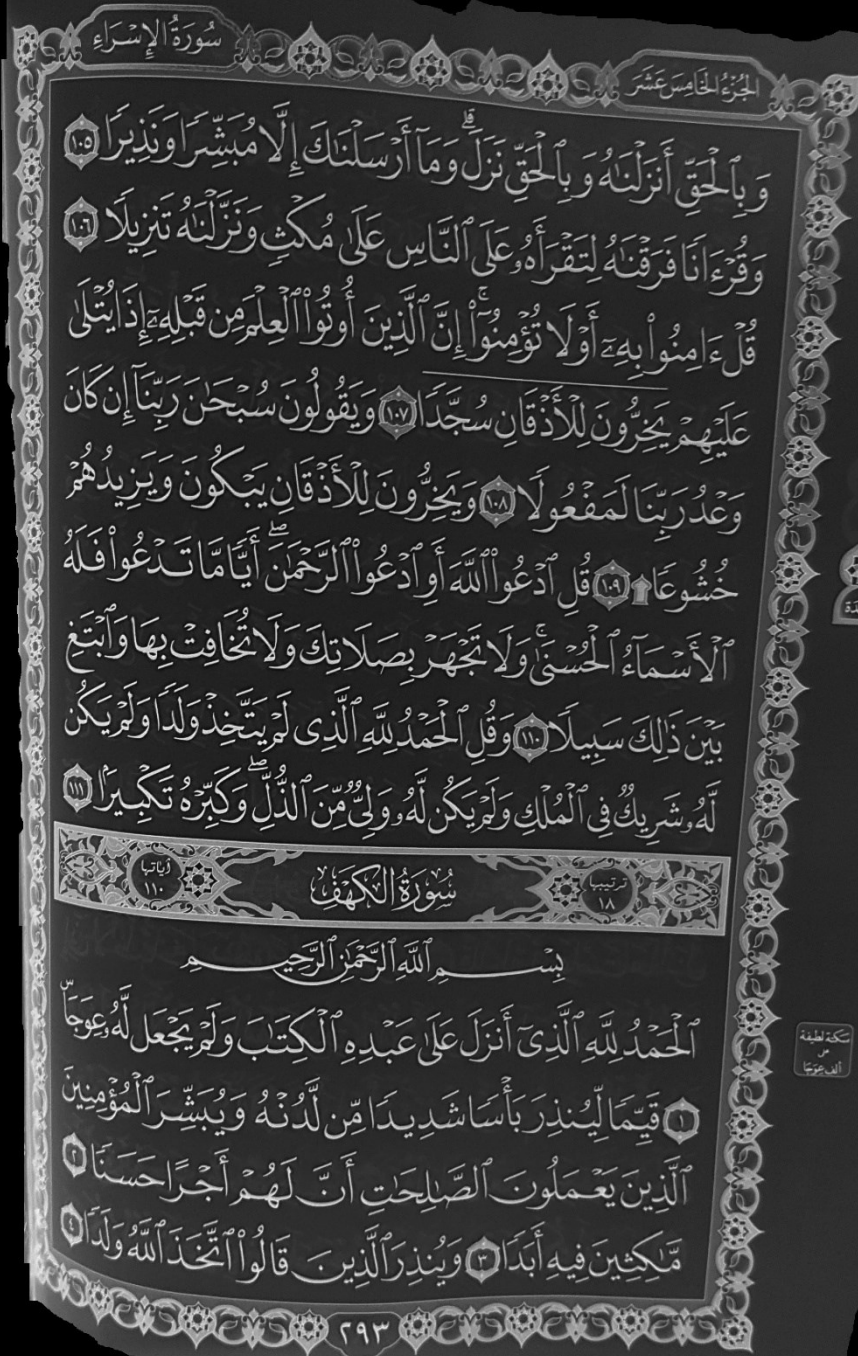 سُورَةُ الإِسْرَاءِ
الجُزْءُ الخَامِسَ عَشَرَ
وَبِٱلْحَقِّ أَنزَلْنَٰهُ وَبِٱلْحَقِّ نَزَلَ ۗ وَمَآ أَرْسَلْنَٰكَ إِلَّا مُبَشِّرًا وَنَذِيرًا ١٠٥
وَقُرْءَانًا فَرَقْنَٰهُ لِتَقْرَأَهُۥ عَلَى ٱلنَّاسِ عَلَىٰ مُكْثٍ وَنَزَّلْنَٰهُ تَنزِيلًا ١٠٦
قُلْ ءَامِنُوا۟ بِهِۦٓ أَوْ لَا تُؤْمِنُوٓا۟ ۚ إِنَّ ٱلَّذِينَ أُوتُوا۟ ٱلْعِلْمَ مِن قَبْلِهِۦٓ إِذَا يُتْلَىٰ
عَلَيْهِمْ يَخِرُّونَ لِلْأَذْقَانِ سُجَّدًا ١٠٧ وَيَقُولُونَ سُبْحَٰنَ رَبِّنَآ إِن كَانَ
وَعْدُ رَبِّنَا لَمَفْعُولًا ١٠٨ وَيَخِرُّونَ لِلْأَذْقَانِ يَبْكُونَ وَيَزِيدُهُمْ
خُشُوعًا ۩ ١٠٩ قُلِ ٱدْعُوا۟ ٱللَّهَ أَوِ ٱدْعُوا۟ ٱلرَّحْمَٰنَ ۖ أَيًّا مَّا تَدْعُوا۟ فَلَهُ
ٱلْأَسْمَآءُ ٱلْحُسْنَىٰ ۚ وَلَا تَجْهَرْ بِصَلَاتِكَ وَلَا تُخَافِتْ بِهَا وَٱبْتَغِ
بَيْنَ ذَٰلِكَ سَبِيلًا ١١٠ وَقُلِ ٱلْحَمْدُ لِلَّهِ ٱلَّذِى لَمْ يَتَّخِذْ وَلَدًا وَلَمْ يَكُن
لَّهُۥ شَرِيكٌ فِى ٱلْمُلْكِ وَلَمْ يَكُن لَّهُۥ وَلِىٌّ مِّنَ ٱلذُّلِّ ۖ وَكَبِّرْهُ تَكْبِيرًۢا ١١١
ترتيبها ١٨
سُورَةُ الكَهْفِ
آياتها ١١٠
بِسْمِ ٱللَّهِ ٱلرَّحْمَٰنِ ٱلرَّحِيمِ
ٱلْحَمْدُ لِلَّهِ ٱلَّذِىٓ أَنزَلَ عَلَىٰ عَبْدِهِ ٱلْكِتَٰبَ وَلَمْ يَجْعَل لَّهُۥ عِوَجَاۜ
١ قَيِّمًا لِّيُنذِرَ بَأْسًا شَدِيدًا مِّن لَّدُنْهُ وَيُبَشِّرَ ٱلْمُؤْمِنِينَ
ٱلَّذِينَ يَعْمَلُونَ ٱلصَّٰلِحَٰتِ أَنَّ لَهُمْ أَجْرًا حَسَنًا ٢
مَّٰكِثِينَ فِيهِ أَبَدًا ٣ وَيُنذِرَ ٱلَّذِينَ قَالُوا۟ ٱتَّخَذَ ٱللَّهُ وَلَدًا ٤
سكتة لطيفة
على
ألف عِوَجَا
٢٩٣